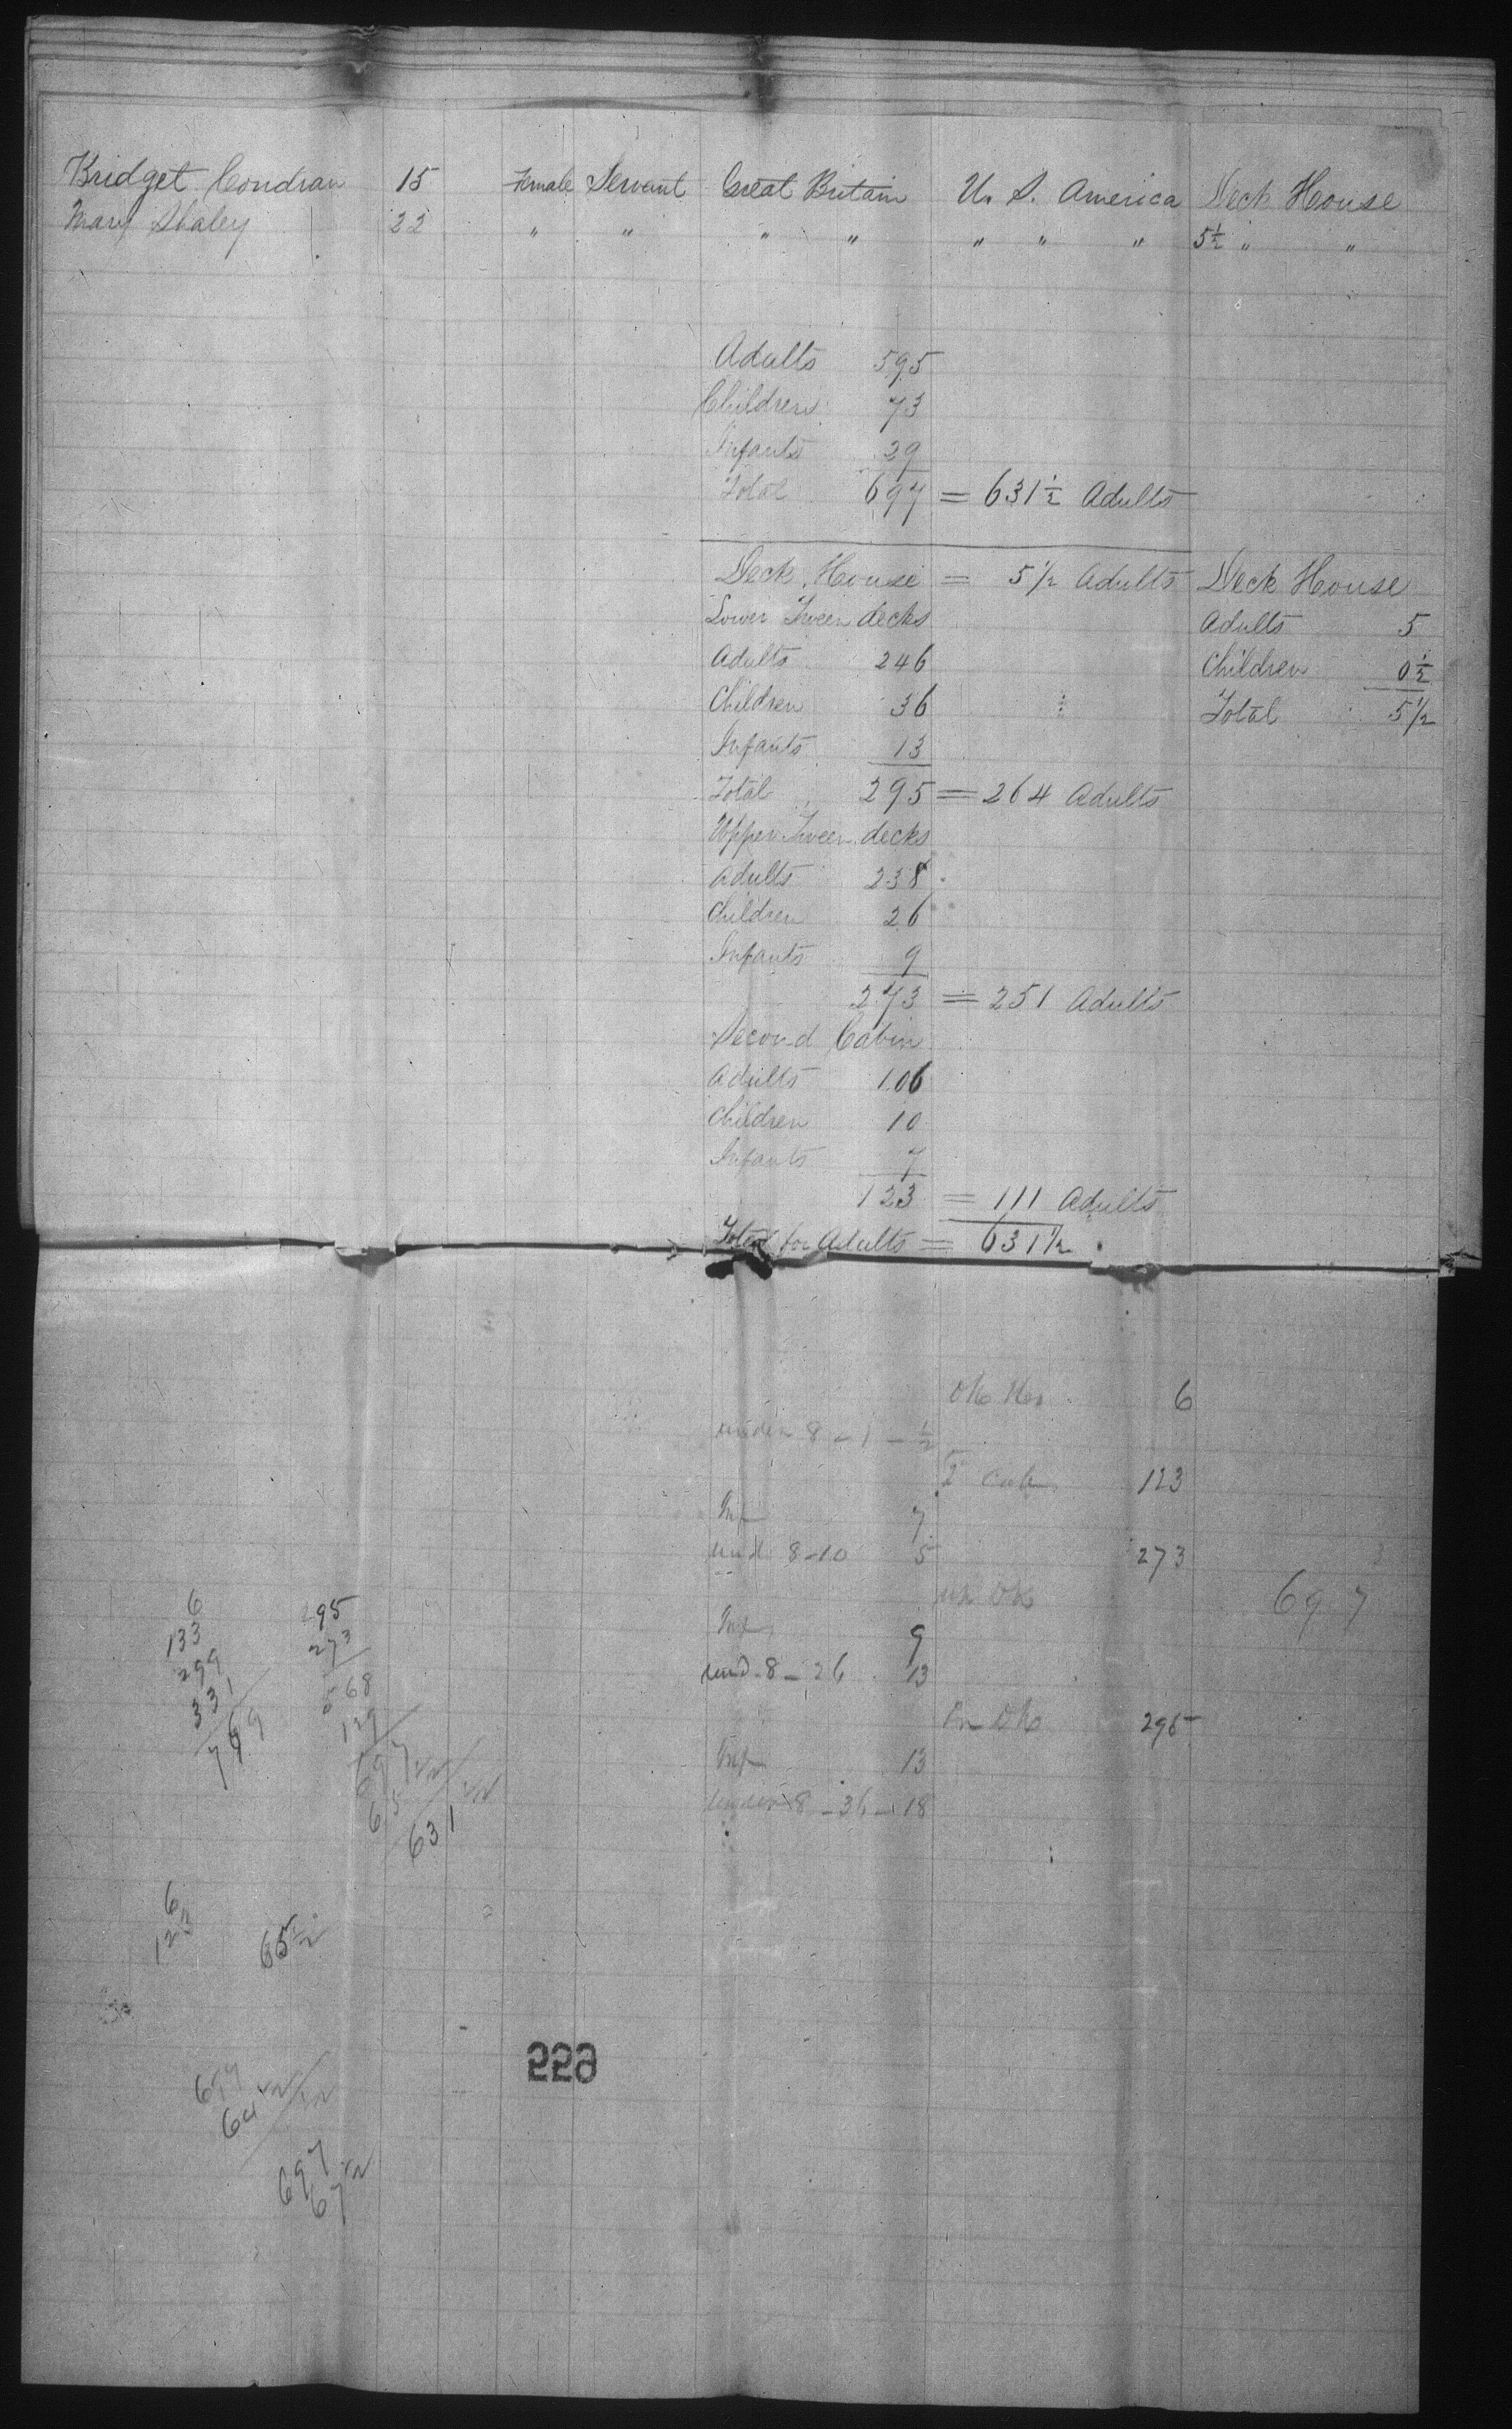 Bridget Condran 15 Female Servant Great Britain U. S. America Deck House
Mary Shaley 22 " " " " " " " 5½ " "
Adults 595
Children 73
Infants 29
Total 697 = 631½ Adults
Deck House = 5½ Adults Deck House
Lower Tween decks Adults 5
Adults 246 Children 0½
Children 36 Total 5½
Infants 13
Total 295 = 264 Adults
Upper Tween decks
Adults 238
Children 26
Infants 9
273 = 251 Adults
Second Cabin
Adults 106
Children 10
Infants 7
123 = 111 Adults
Total for Adults = 631½
6
under 8 - 1 - ½
2 Cab 123
Inf 7
und 8-10 5 273
697
Inf 9
und 8 - 26 13
295
Inf 13
under 8 - 36 - 18
6
133
299
331
295
273
568
129
697
631
6
123
65½
659
697
67½